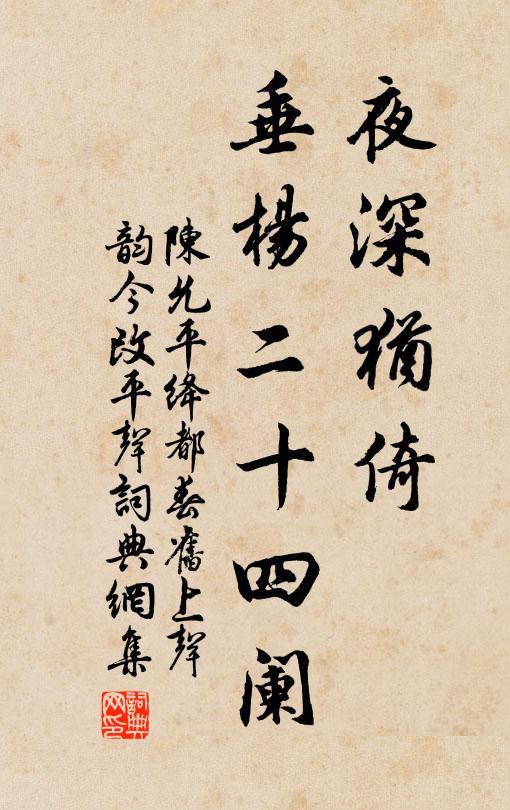 夜深猶倚
垂楊二十四阑
陳允平绛都春舊上聲
韵今改平聲詞典網集
詞典网印